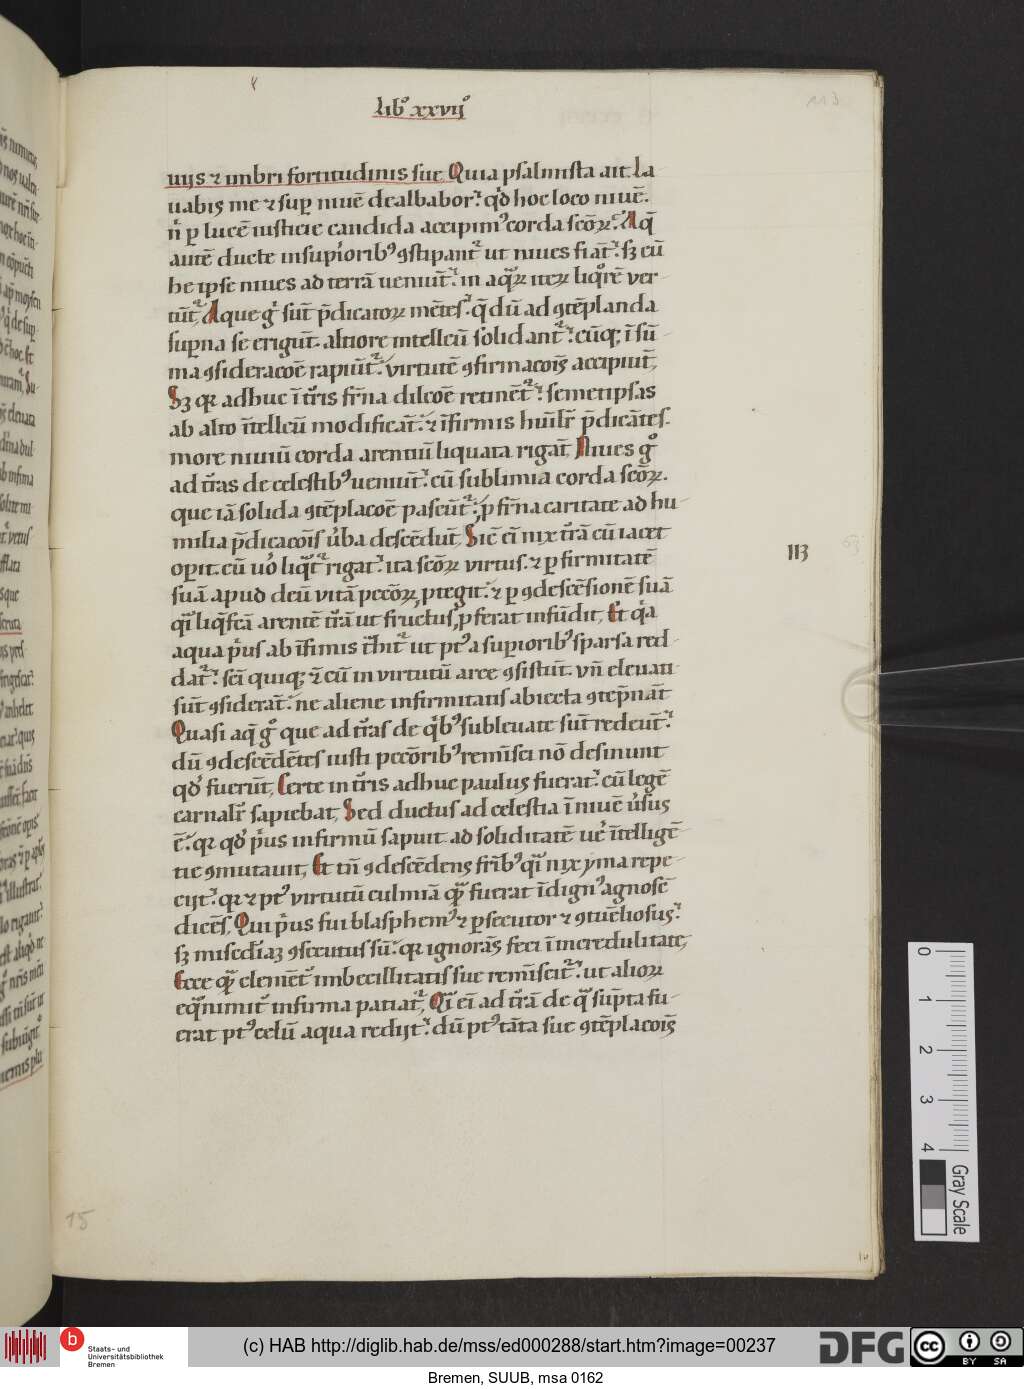 Libꝰ xxvij
uijs ⁊ imbri fortitudinis sue. Quia psalmista ait. La-
uabis me ⁊ suꝑ niuē dealbabor. qd̓ hoc loco niuē.
ꝑ lucē iusticie candida accipimꝰ corda scōꝝ. Aq̄
autē ducte in supioribꝰ ꝯstipant᷑ ut niues fiāt. sꝫ cū
he ipse niues ad terrā ueniūt. in aqꝝ iteꝝ liqꝛē ver-
tūt᷑. Aque gͦ sūt p̄dicatoꝝ mētes. q̄ dū ad ꝯtēplanda
supna se erigūt. altiore intellcū solidant᷑. cūqꝫ ī sū-
ma ꝯsideracōē rapiūt᷑. virtutē ꝯfirmacōis accipiūt,
Sꝫ qꝛ adhuc ī tr̄is frn̄a dilcōē retinēt᷑. semetipsas
ab alto ītellcū modificāt. ⁊ īfirmis humilr̄ p̄dicātes.
more niuiū corda arentiū liquata rigāt. Niues gͦ
ad tr̄as de celestibꝰ ueniūt. cū sublimia corda scōꝝ.
que iā solida ꝯtēplacōē pascūt᷑. ꝓ frn̄a caritate ad hu-
milia p̄dicacōis ūba descēdūt. Sic ei nix tr̄ā cū iacet
oꝑit. cū uͦo liqt᷑ rigat. ita scōꝝ virtus. ⁊ ꝑ firmitatē
suā apud deū vitā peccōꝝ ꝓtegit. ⁊ ꝑ ꝯdescēsionē suā
qi liqfcā arentē tr̄ā ut fructus ꝓferat infūdit, Et qa
aqua pus ab īfimis t̄hit᷑ ut ptꝰ a suꝑioribꝰ sparsa red-
dat᷑. sci quiqꝫ ⁊ cū in virtutū arce ꝯsistūt. vn̄ eleuati
sūt ꝯsiderāt. ne aliene infirmitatis abiecta ꝯtēpnāt
Quasi aq̄ gͦ que ad tr̄as de qbꝰ subleuate sūt redeūt.
dū ꝯdescēdētes iusti peccōribꝰ remīsci nō desinunt
qd̓ fuerūt, Certe in tr̄is adhuc paulus fuerat. cū legē
carnalr̄ sapiebat, Sed ductus ad celestia ī niuē ūsus
ē. qꝛ qd̓ pus infirmū sapuit ad soliditatē ue ītelligē-
tie ꝯmutauit, Et tn̄ ꝯdescēdens fribꝰ qi nix yma repe-
cijt. qꝛ ⁊ ptꝰ virtutū culmiā q̄ fuerat īdignꝰ agnosē
dicēs. Qui pus fui blasphemꝰ ⁊ ꝑsecutor ⁊ ꝯtūeliosus.
sꝫ misediaꝫ ꝯsecutus sū. qꝛ ignorās feci ī incredulitate,
Ecce q̄ clemēt imbecillitatis sue remīscit᷑. ut alioꝝ
eqnimit infirma patiat᷑, Qi ei ad tr̄ā de q̄ sūpta fu-
erat ptꝰ celū aqua redijt. dū ptꝰ tāta sue ꝯtēplacōis
113
113
15
0
1
2
3
4
Gray Scale
Staats- und
Universitätsbibliothek
Bremen
(c) HAB http://diglib.hab.de/mss/ed000288/start.htm?image=00237
DFG
cc
BY SA
Bremen, SUUB, msa 0162